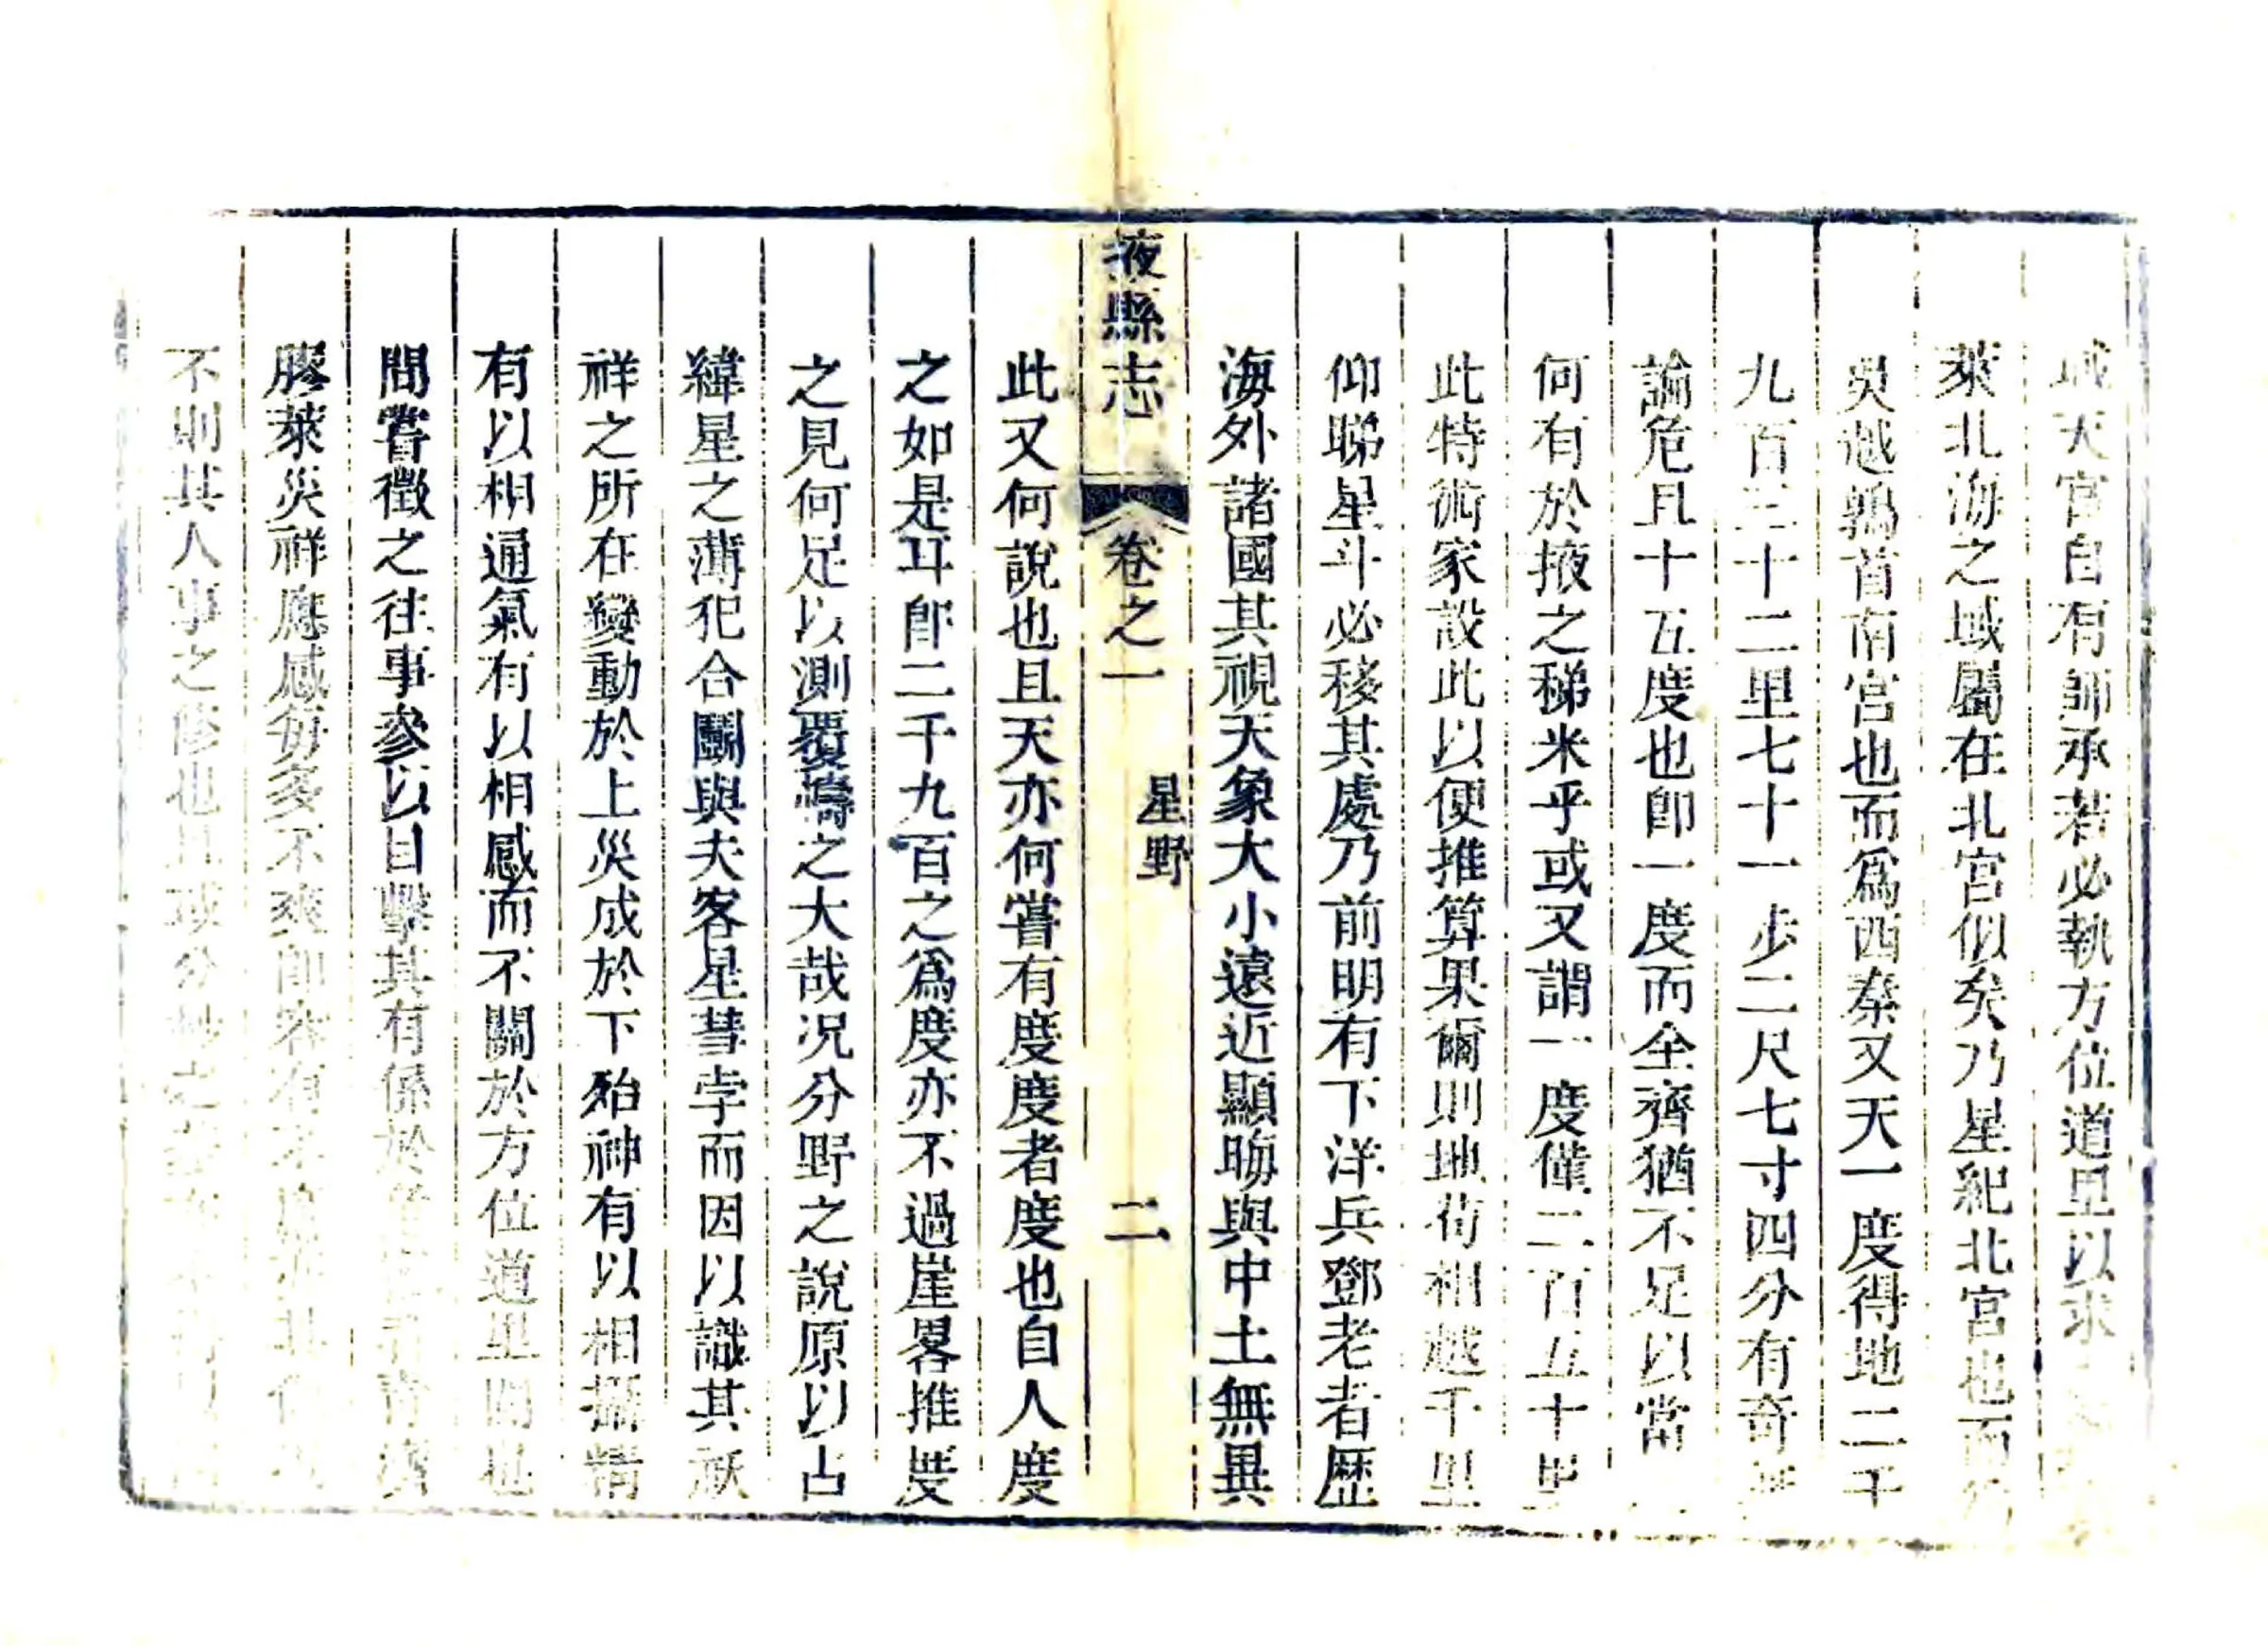 域天官自有師承若必執方位道里以求
萊北海之域屬在北宮似矣乃星紀北宮也而
吳越鶉首南宮也而爲西秦又天一度得地二千
九百三十二里七十一步二尺七寸四分有奇
論危且十五度也卽一度而全齊猶不足以當
何有於掖之稊米乎或又謂一度僅二百五十里
此特術家設此以便推算果爾則地苟相越千里
仰睇星斗必移其處乃前明有下洋兵鄧老者歷
海外諸國其視天象大小遠近顯晦與中土無異
掖縣志 卷之一 星野 二
此又何說也且天亦何嘗有度度者度也自人度
之如是耳卽二千九百之爲度亦不過崖畧推度
之見何足以測覆幬之大哉况分野之說原以占
緯星之薄犯合鬭與夫客星彗孛而因以識其祅
祥之所在變動於上災成於下殆神有以相攝精
有以相通氣有以相感而不關於方位道里間也
間嘗徵之往事參以目擊其有係於 青齊
膠萊災祥應感每多不爽卽客有不
不則其人事之修也且域分 之